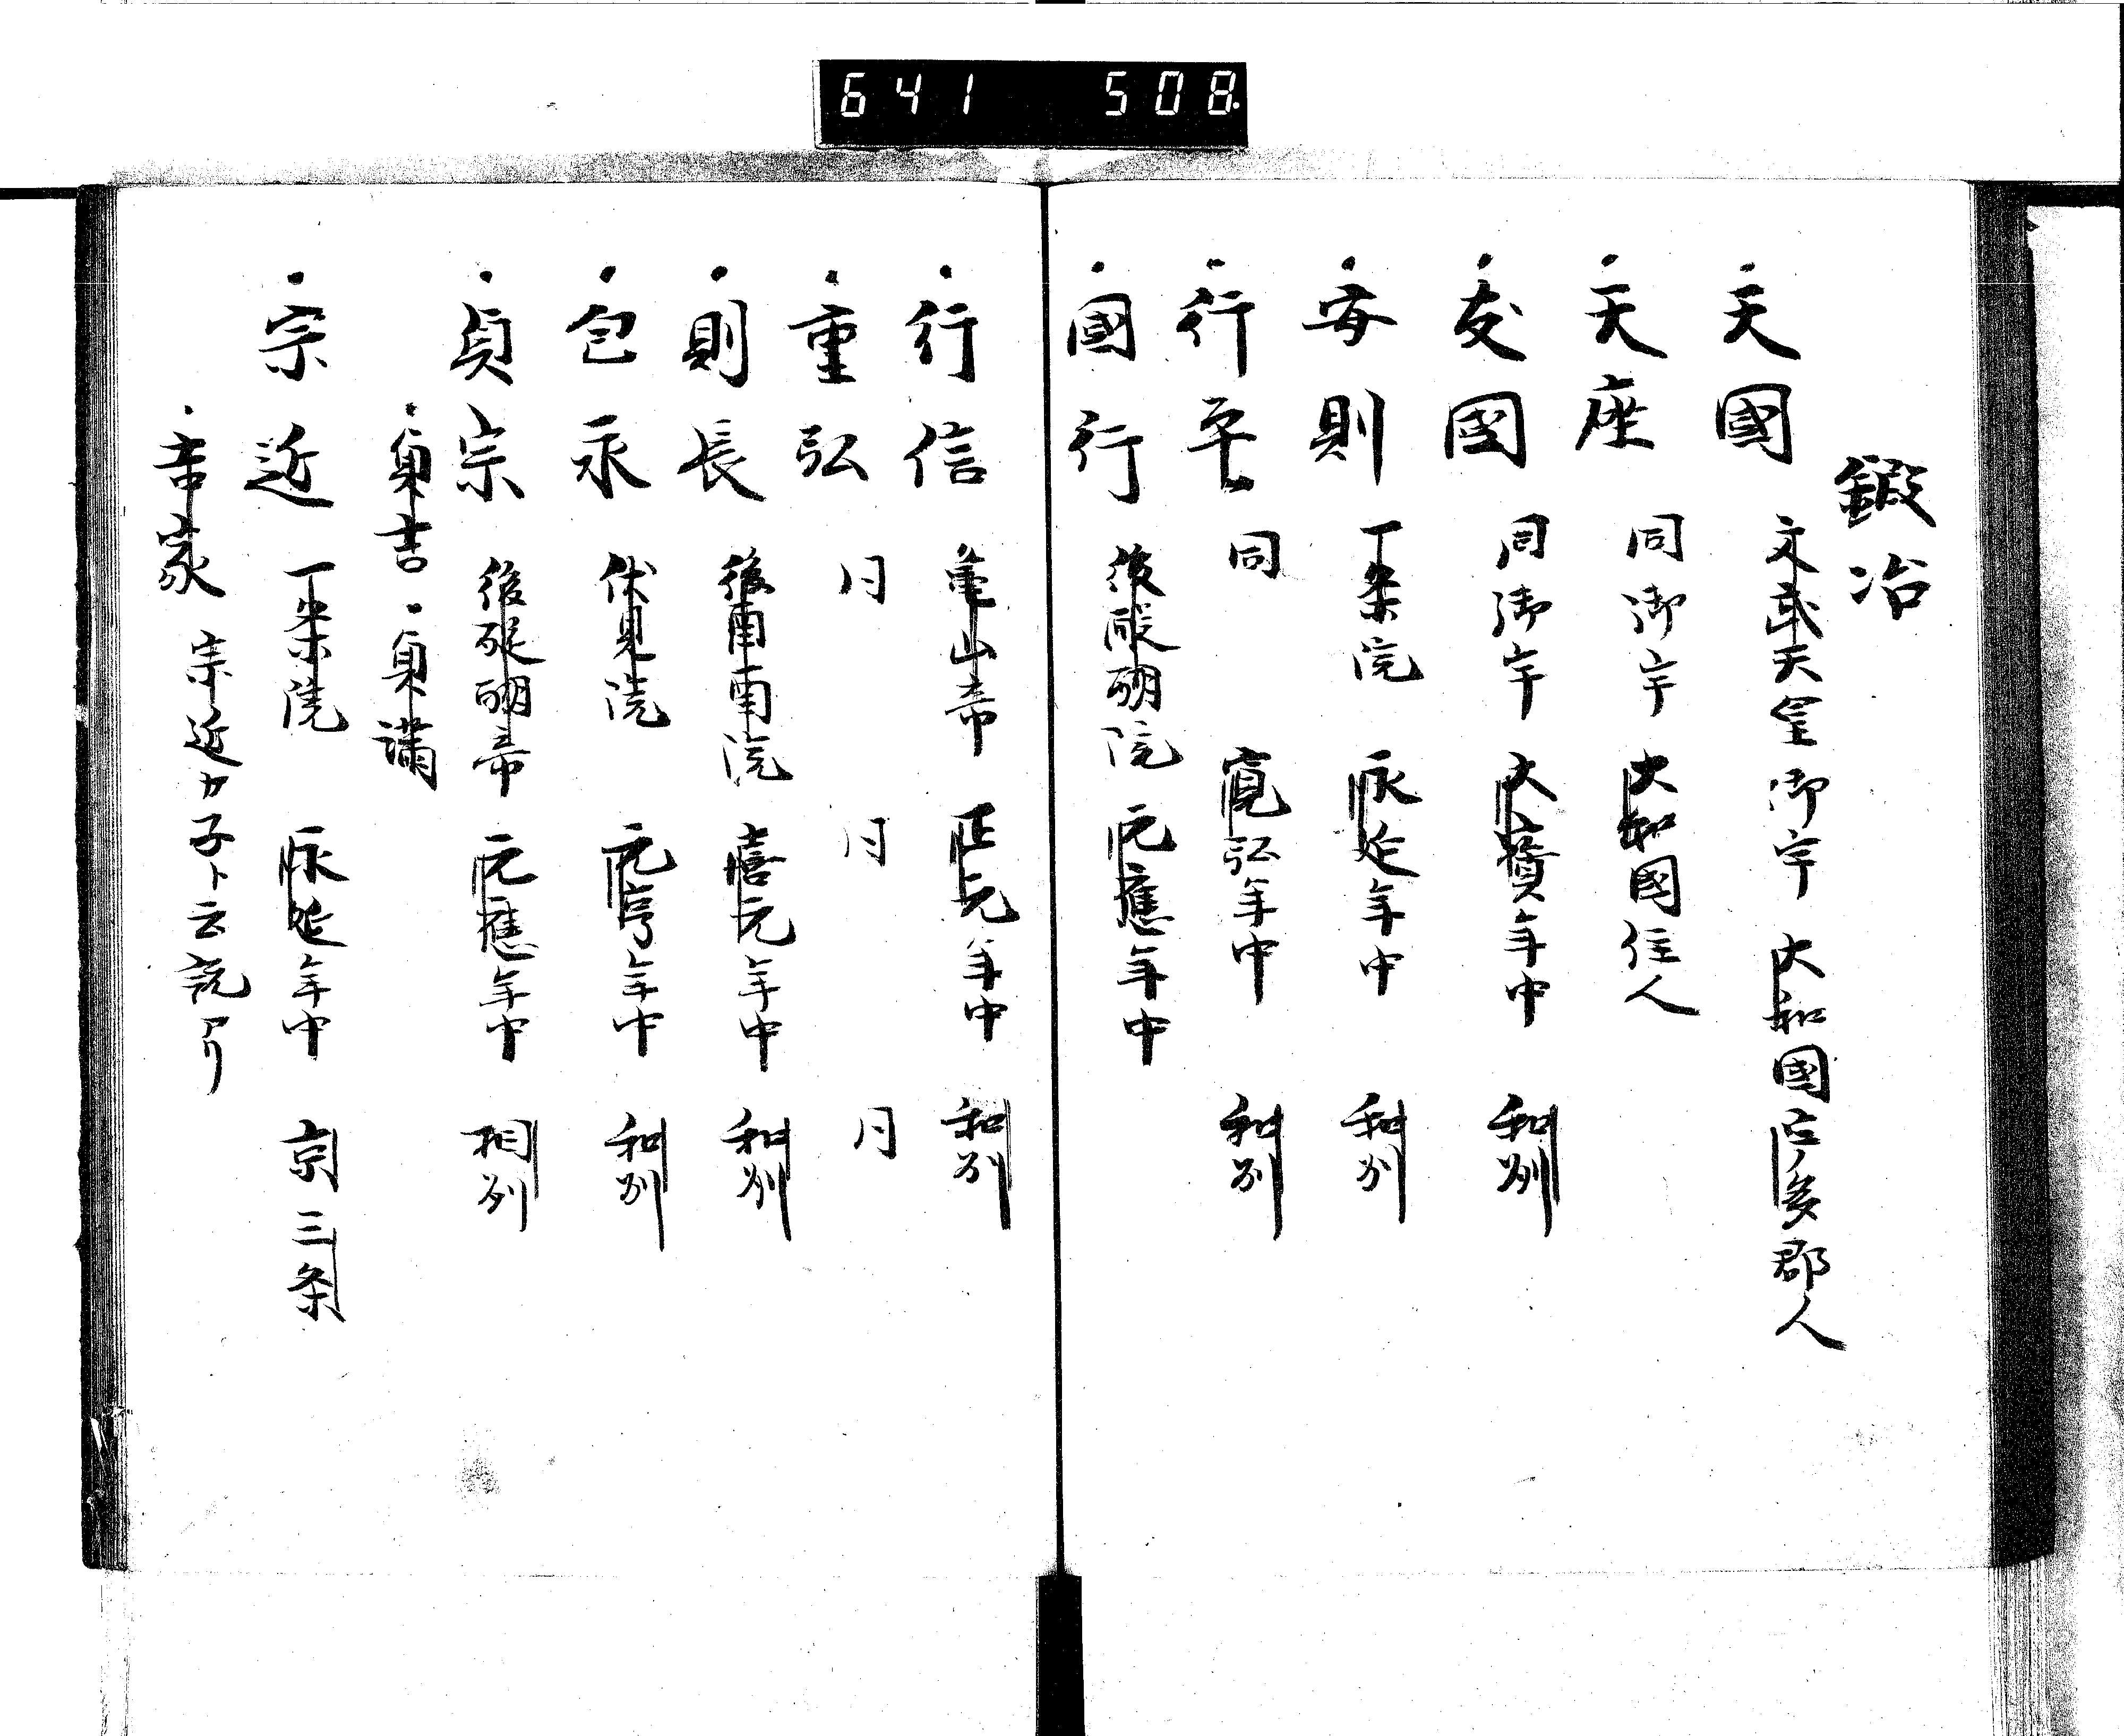 641 508.
鍛冶
天國 文武天皇御宇 大和國宇多郡人
天座 同御宇 大和國住人
友國 同御宇 大寳年中 和州
安則 一条院 永延年中 和州
行平 同 寛弘年中 和州
國行 後醍醐院 元應年中
行信 亀山帝 正元年中 和州
重弘 同 同 同
則長 後 院 嘉元年中 和州
包永 伏見院 元亨年中 和州
貞宗 後醍醐帝 元應年中 相州
貞吉 貞
宗近 一条院 永延年中 京三条
吉家 宗近カ子ト云説アリ